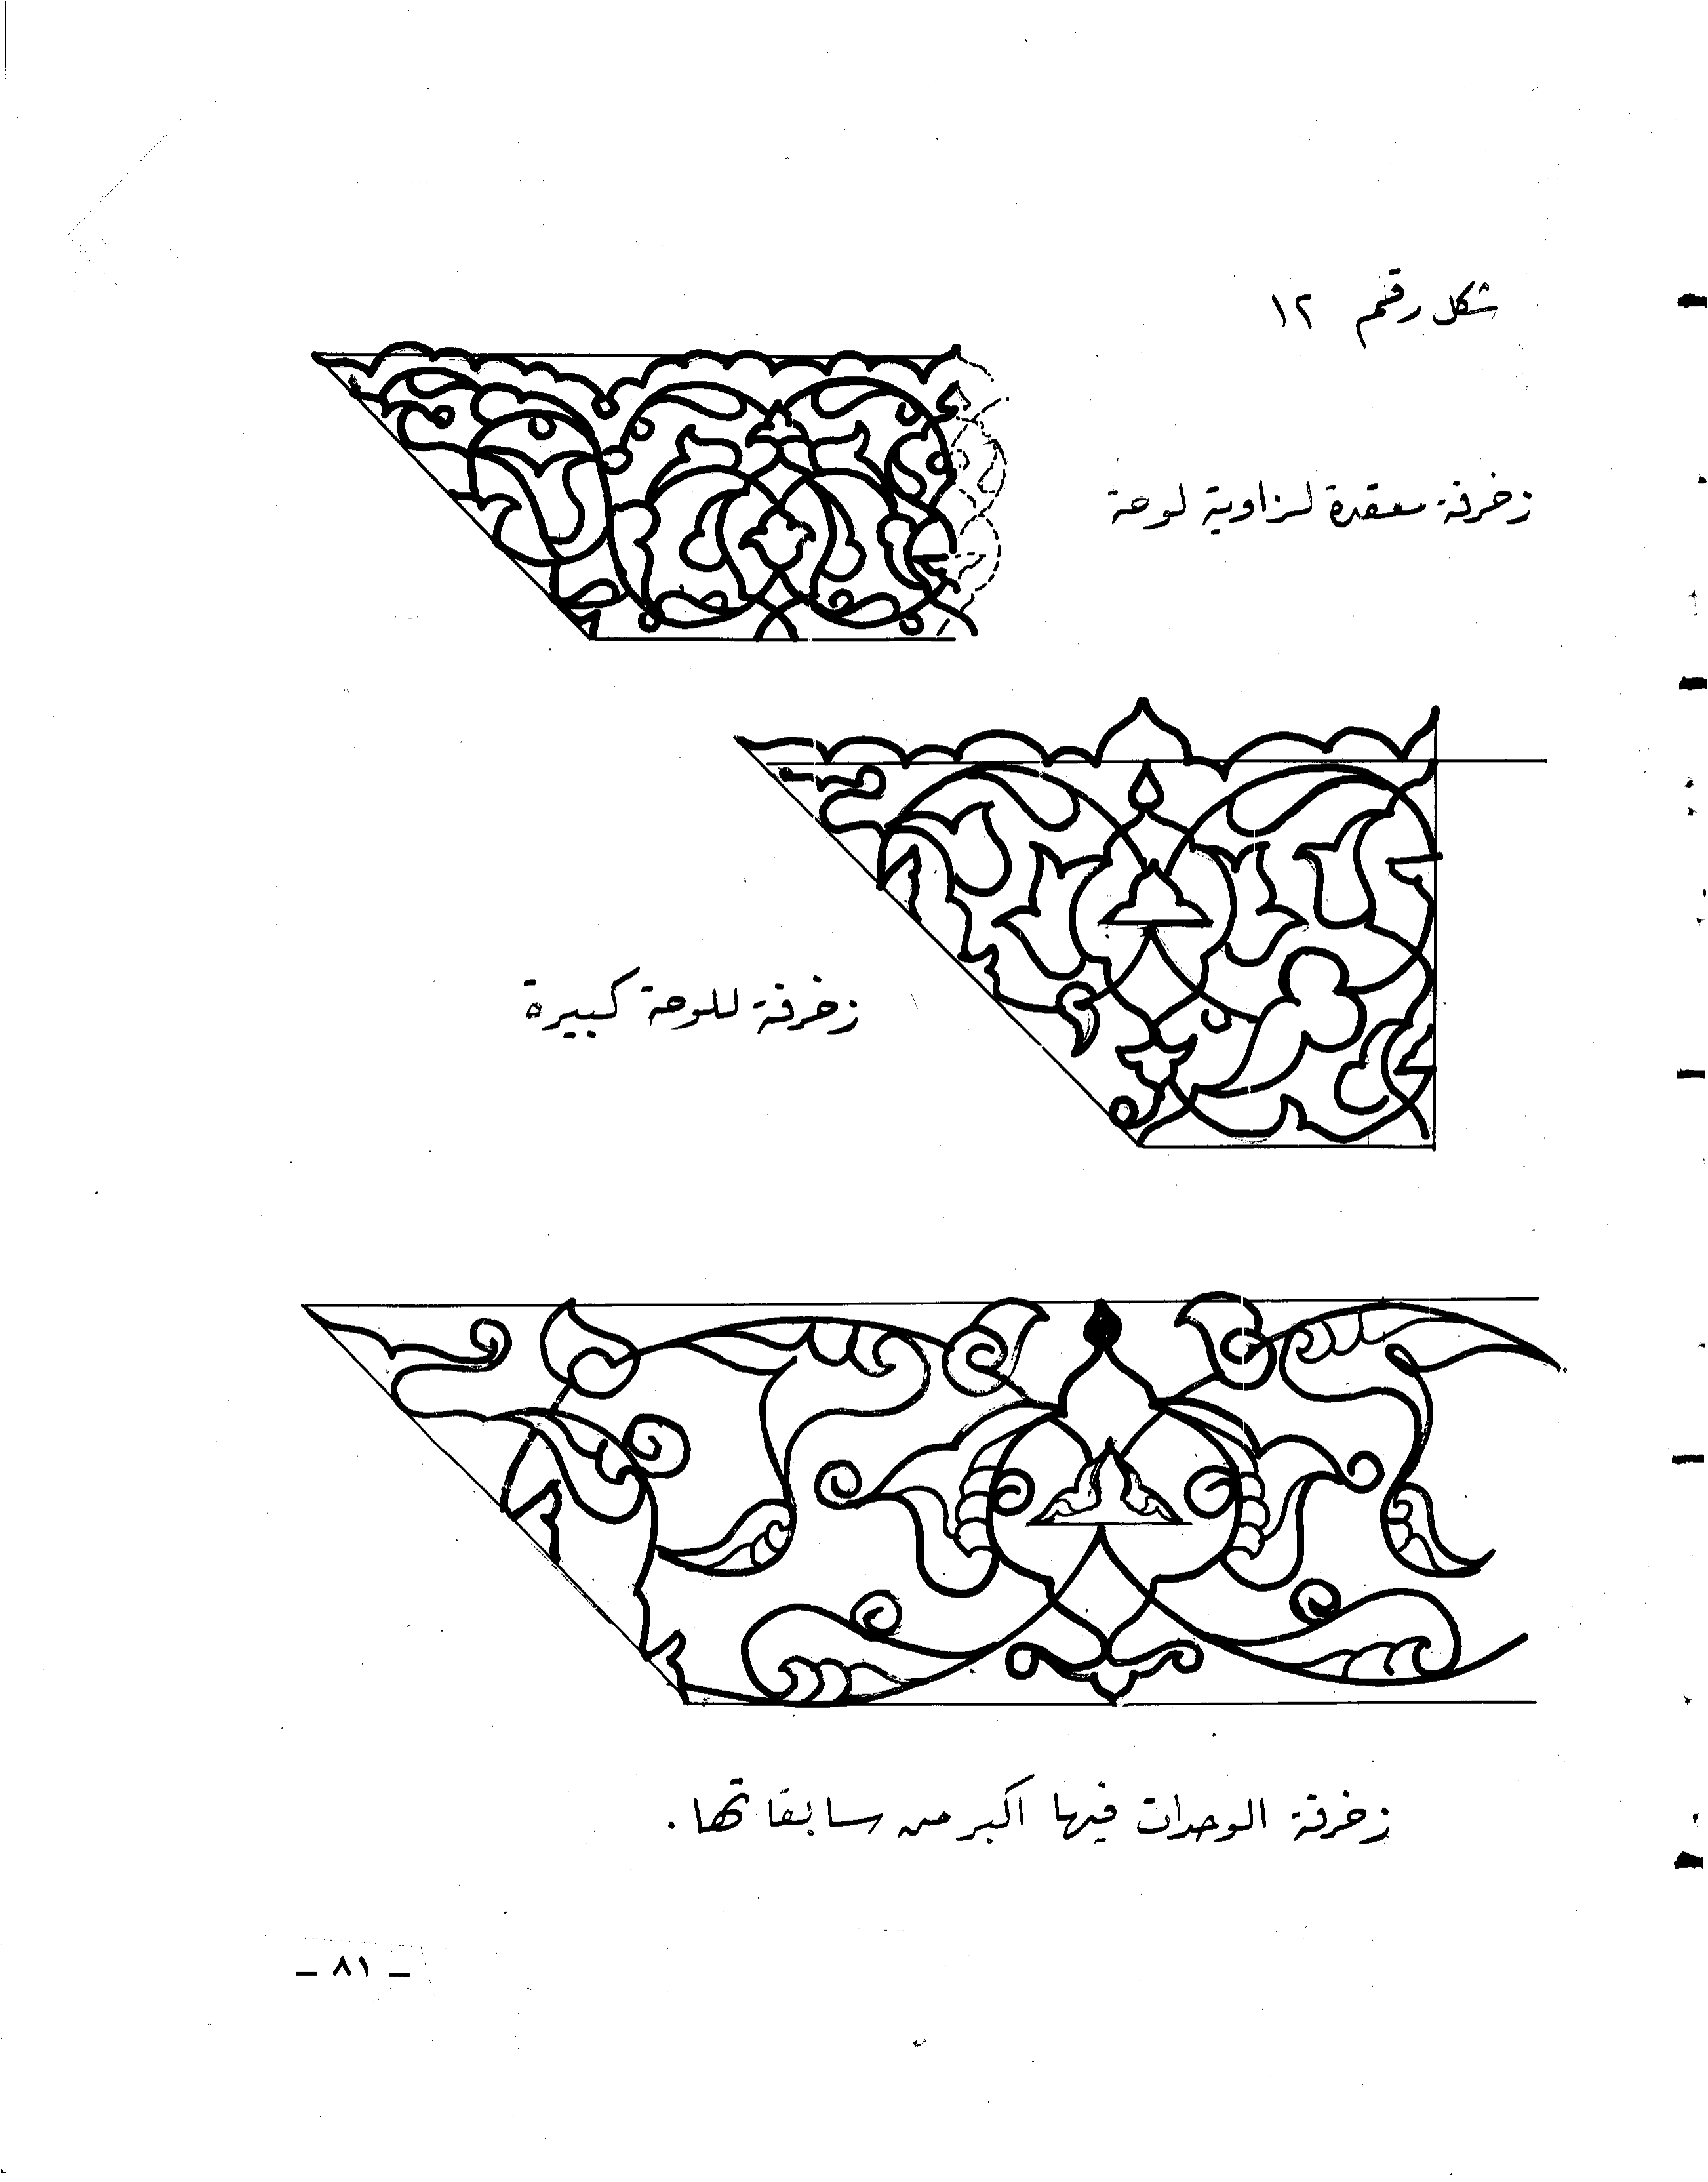 شكل رقم ١٢
زخرفة معقدة لزاوية لوحة
زخرفة للوحة كبيرة
زخرفة الوحدات فيها اكبر من سابقاتها .
_ ٨١ _